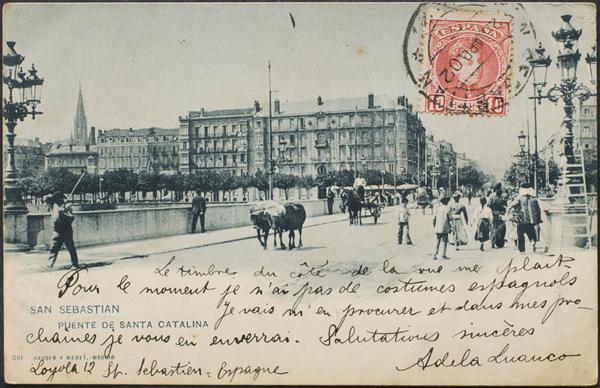 ESPAÑA
10
Le timbre du côté de la vue me plait
Pour le moment je n'ai pas de costumes espagnols
SAN SEBASTIAN
Je vais m'en procurer et dans mes pro-
PUENTE DE SANTA CATALINA
chaines je vous en enverrai. Salutations sincères
891 HAUSER Y MENET, MADRID
Adela Luanco
Loyola 12 Sn. Sebastien = Espagne